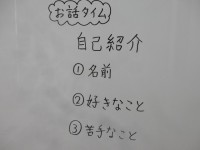 お話タイム
自己紹介
①名前
②好きなこと
③苦手なこと